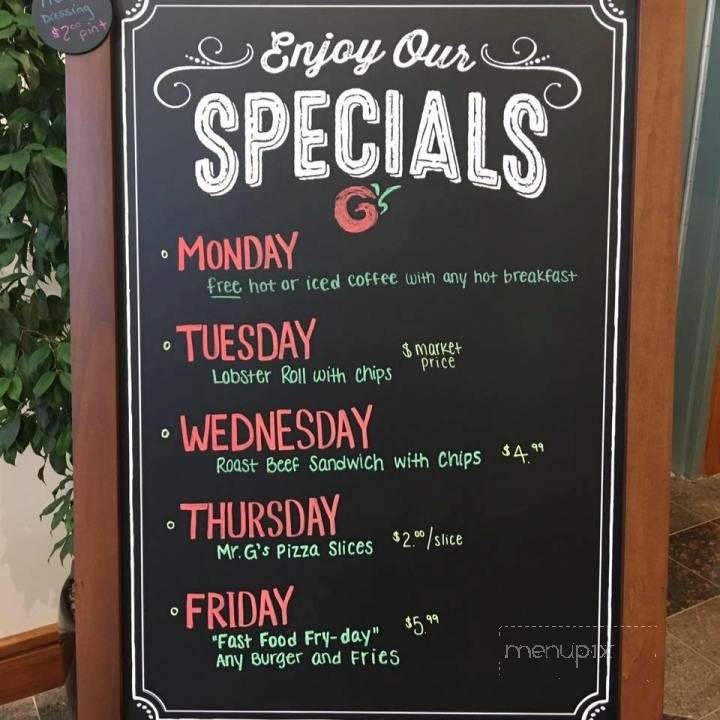 Dressing
$2.00 pint
Enjoy Our
SPECIALS
G's
MONDAY
free hot or iced coffee with any hot breakfast
TUESDAY
Lobster Roll with chips
$ market
price
WEDNESDAY
Roast Beef Sandwich with Chips $4.99
THURSDAY
Mr. G's Pizza Slices $2.00/slice
FRIDAY
"Fast Food Fry-day" $5.99
Any Burger and Fries
menupix